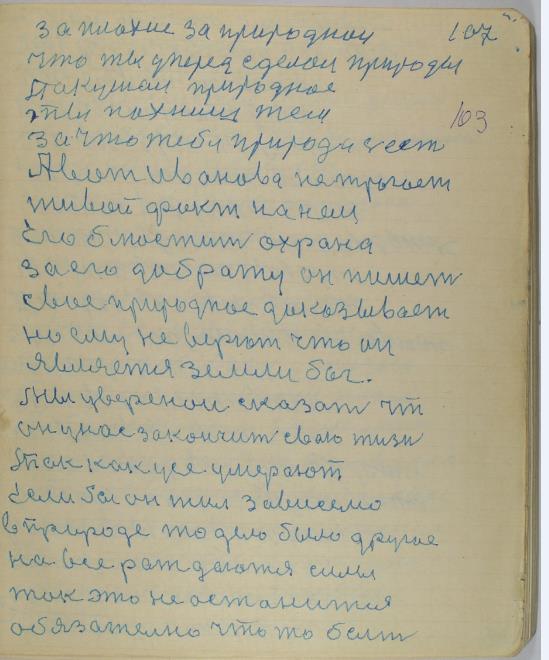 за плохие за природнои 107
что ты уперед сделал природи
такушаи природное
ты пахниш тем 103
за что тебя природа чест
А вот Иванова не трогает
живой факт на нем
Его блюстит охрана
за его доброту он пишет
свое природное доказывает
но ему не верют что он
является земли бог.
Мы уверенои сказат чт
он унас закончит сваю жизн
так как усе умерают
Если бы он жил зависемо
в природе то дело было другое
на все раждаются силы
так это не останится
обязателно что то белт